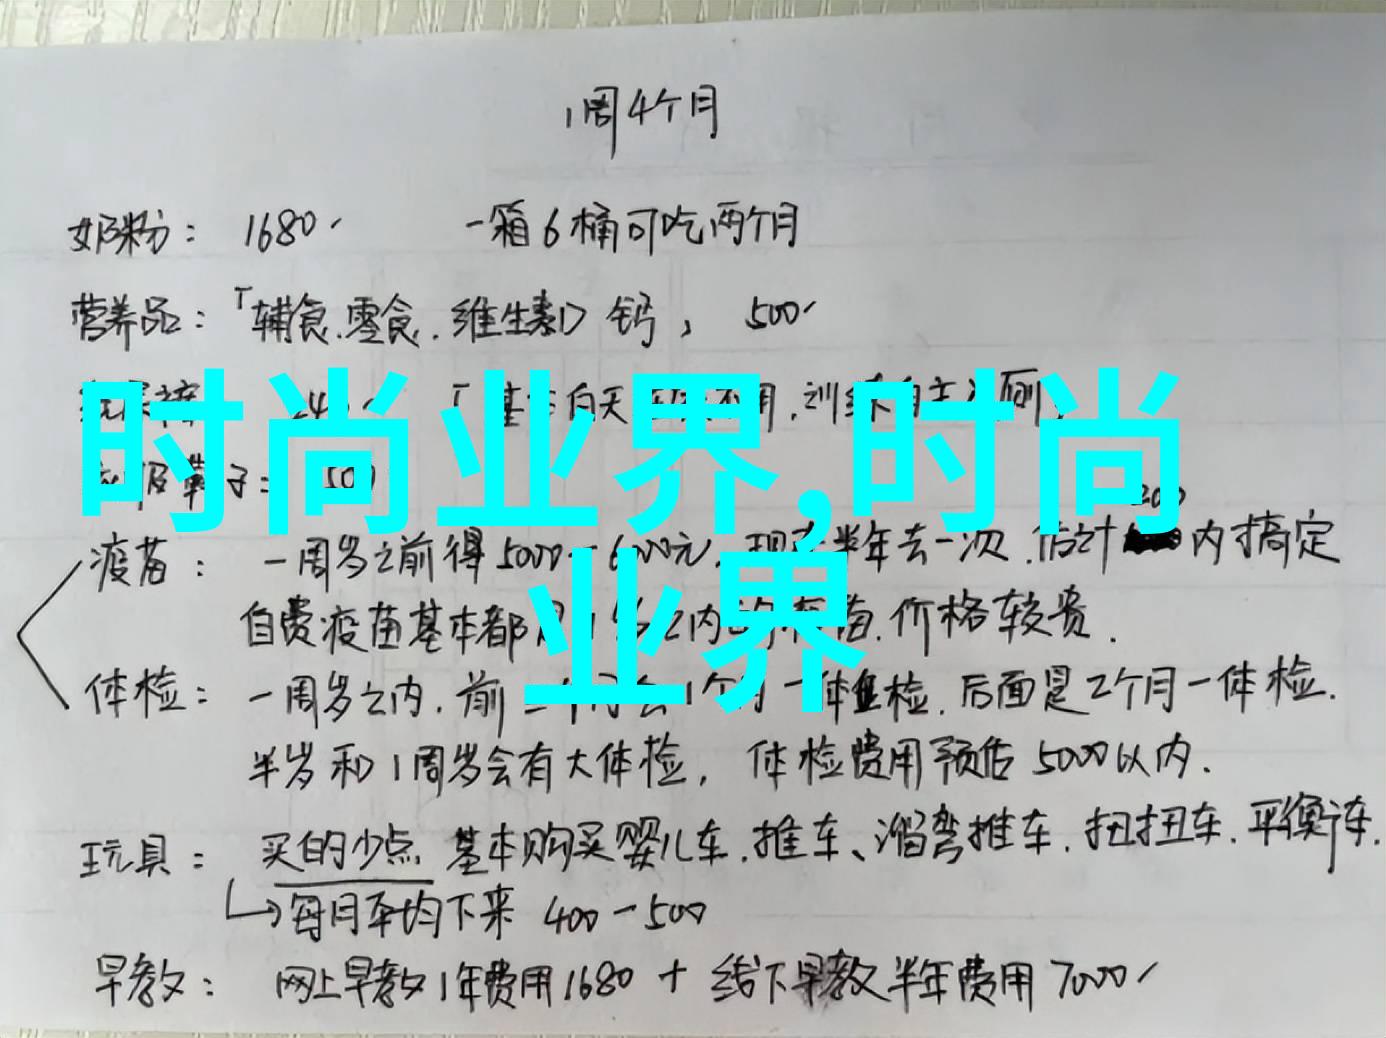 1周4个月
奶粉: 1680 一箱6桶可吃两个月
营养品:「辅食.零食.维生素D 钙, 500
「基 白天 用.训练自主
裤子: 100
时尚业界,时尚
业界
200
疫苗: 一周岁之前得5000-6000元.现在半年去一次.估计 内搞定
自费疫苗基本都 内 价格较贵.
体检: 一周岁之内.前 个月 1个月一体检.后面是2个月一体检.
半岁和1周岁会有大体检, 体检费用预估5000以内.
玩具: 买的少点 基本购买婴儿车.推车、溜弯推车.扭扭车.平衡车.
每月平均下来 400-500
早教: 网上早教1年费用1680 + 线下早教半年费用7000